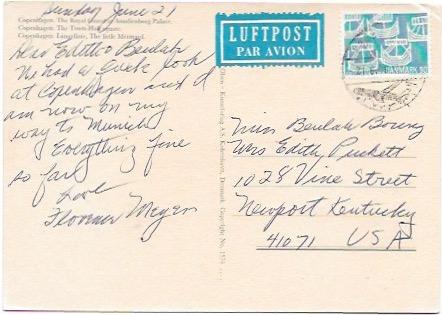 Sunday June 21
Copenhagen. The Royal Guard at Amalienborg Palace.
Copenhagen. The Town-Hall square.
Copenhagen. Langelinie. The little Mermaid.
Dear Edith & Beulah
We had a quick look
at Copenhagen and I
am now on my
way to Munich
Everything fine
so far.
Love
Florence Meyer
LUFTPOST
PAR AVION
NORDEN
DANMARK
Miss Beulah Bourg
Mrs Edith Puckett
1028 Vine Street
Newport Kentucky
41071 USA